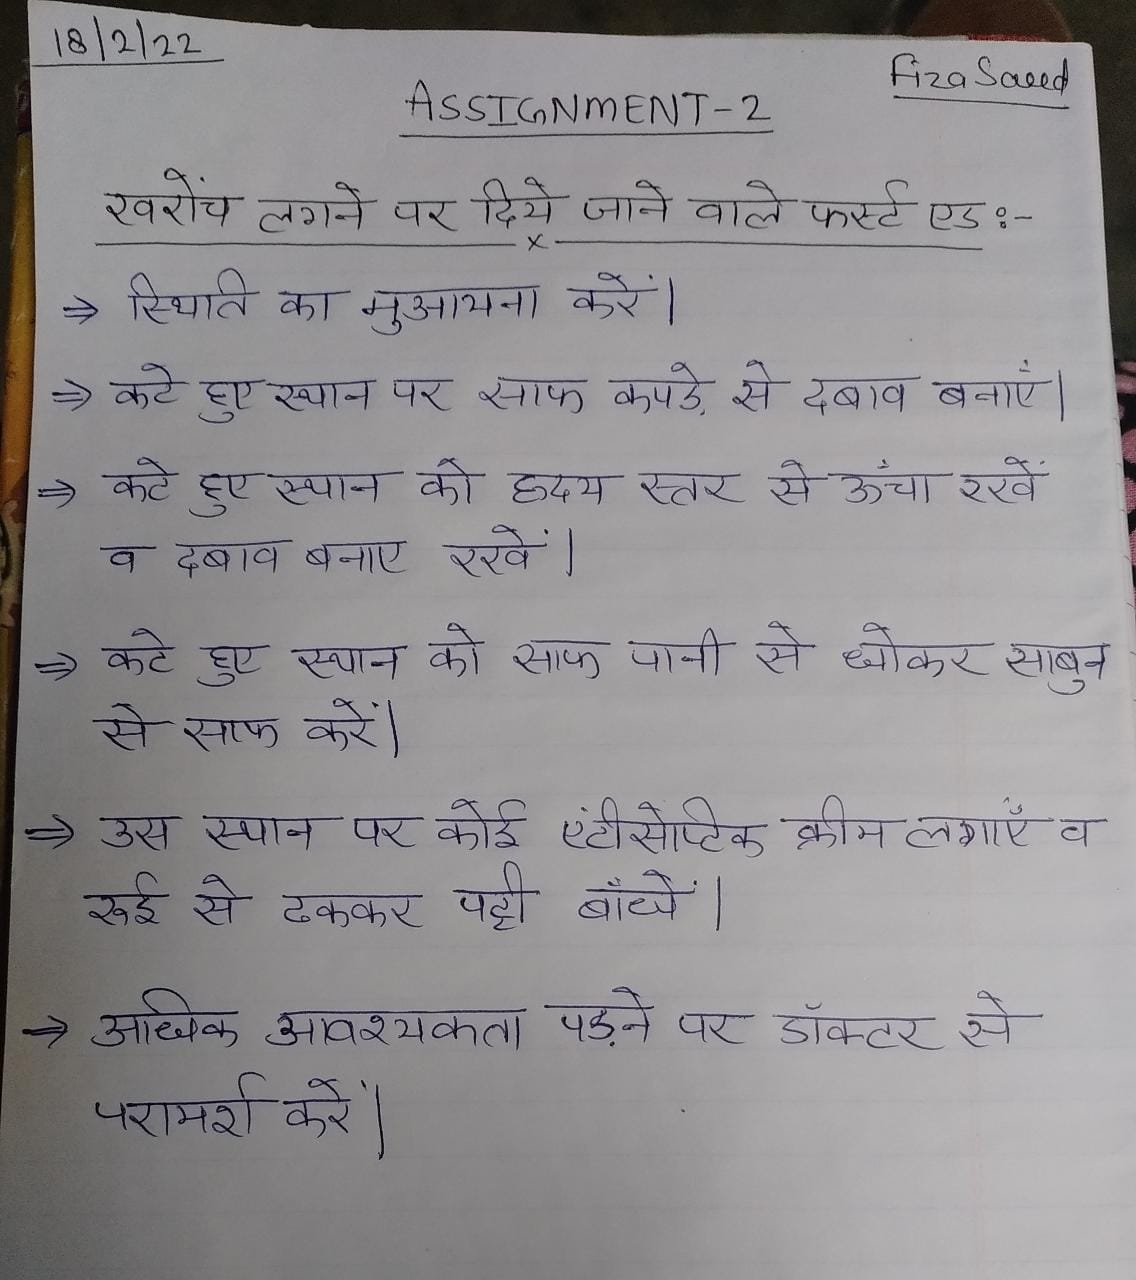 18/2/22
Fiza Saeed
ASSIGNMENT-2
खरोंच लगने पर दिये जाने वाले फर्स्ट एड :-
x
⇒ स्थिति का मुआयना करें।
⇒ कटे हुए स्थान पर साफ कपड़े से दबाव बनाएं।
⇒ कटे हुए स्थान को हृदय स्तर से ऊंचा रखें
व दबाव बनाए रखें।
⇒ कटे हुए स्थान को साफ पानी से धोकर साबुन
से साफ करें।
⇒ उस स्थान पर कोई एंटीसेप्टिक क्रीम लगाएँ व
रूई से ढककर पट्टी बाँधें।
⇒ अधिक आवश्यकता पड़ने पर डॉक्टर से
परामर्श करें।